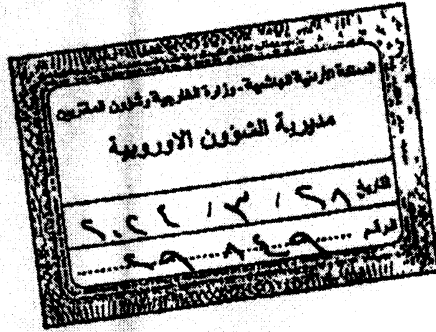 المملكة الأردنية الهاشمية-وزارة الخارجية وشؤون المغتربين
مديرية الشؤون الاوروبية
التاريخ ٢٨ / ٣ / ٢٠٢٤
الرقم